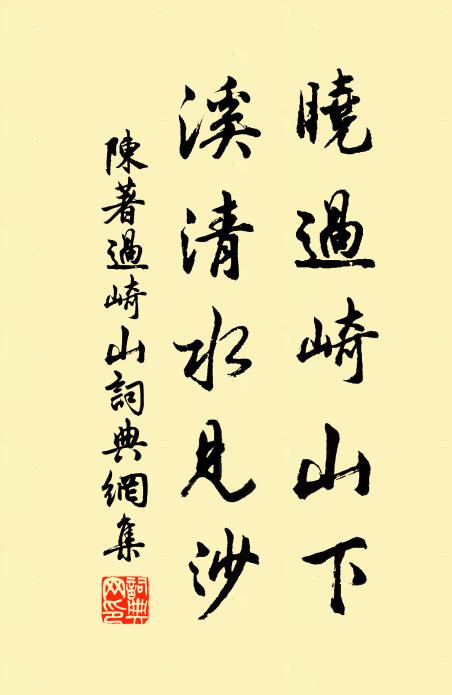 曉過崎山下
溪清水見沙
陳著過崎山詞典網集
詞典網印